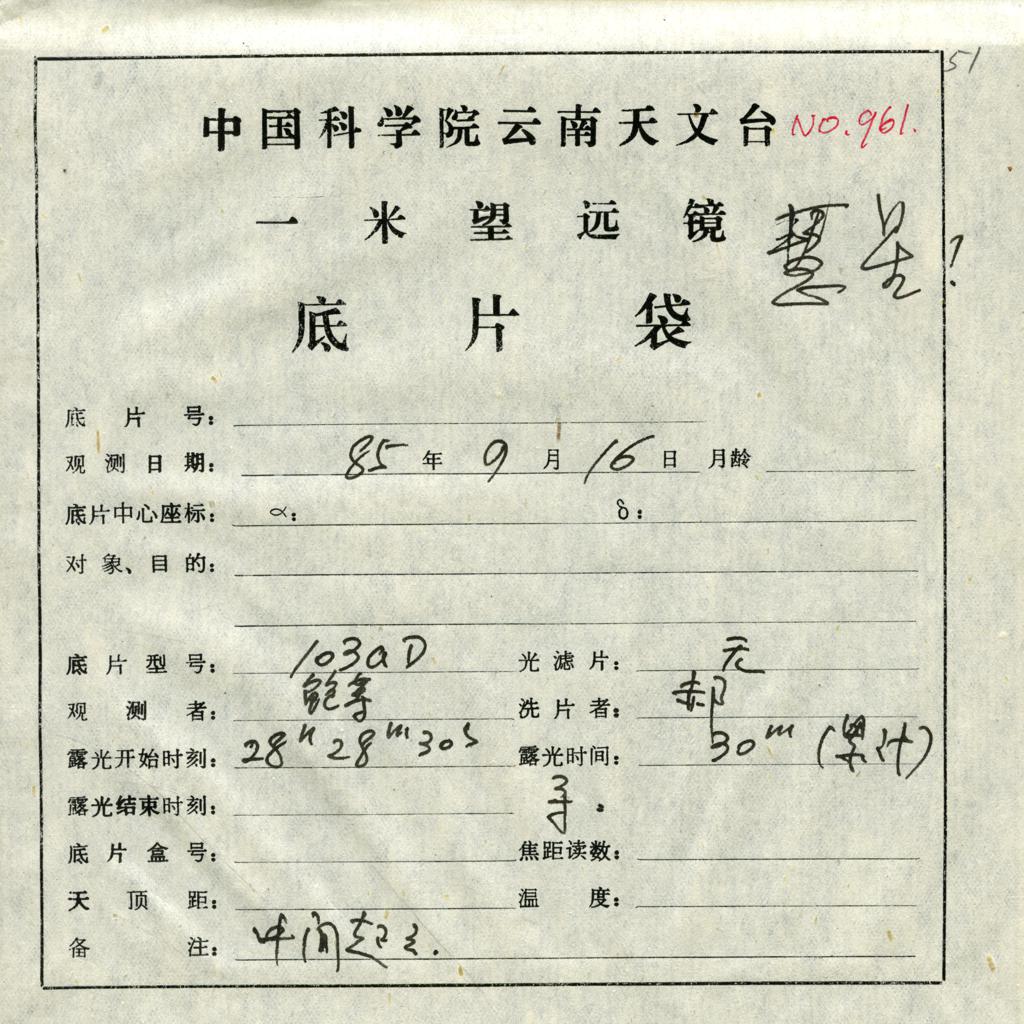 51
中国科学院云南天文台 NO.961.
一米望远镜
慧星!
底片袋
底片号:
观测日期: 85 年 9 月 16 日 月龄
底片中心座标: α: δ:
对象、目的:
底片型号: 103aD 光滤片: 无
观测者: 鲍 洗片者: 郝
露光开始时刻: 28h 28m 30s 露光时间: 30m (累计)
露光结束时刻:
底片盒号: 焦距读数:
天顶距: 温度:
备注: 中间起云.